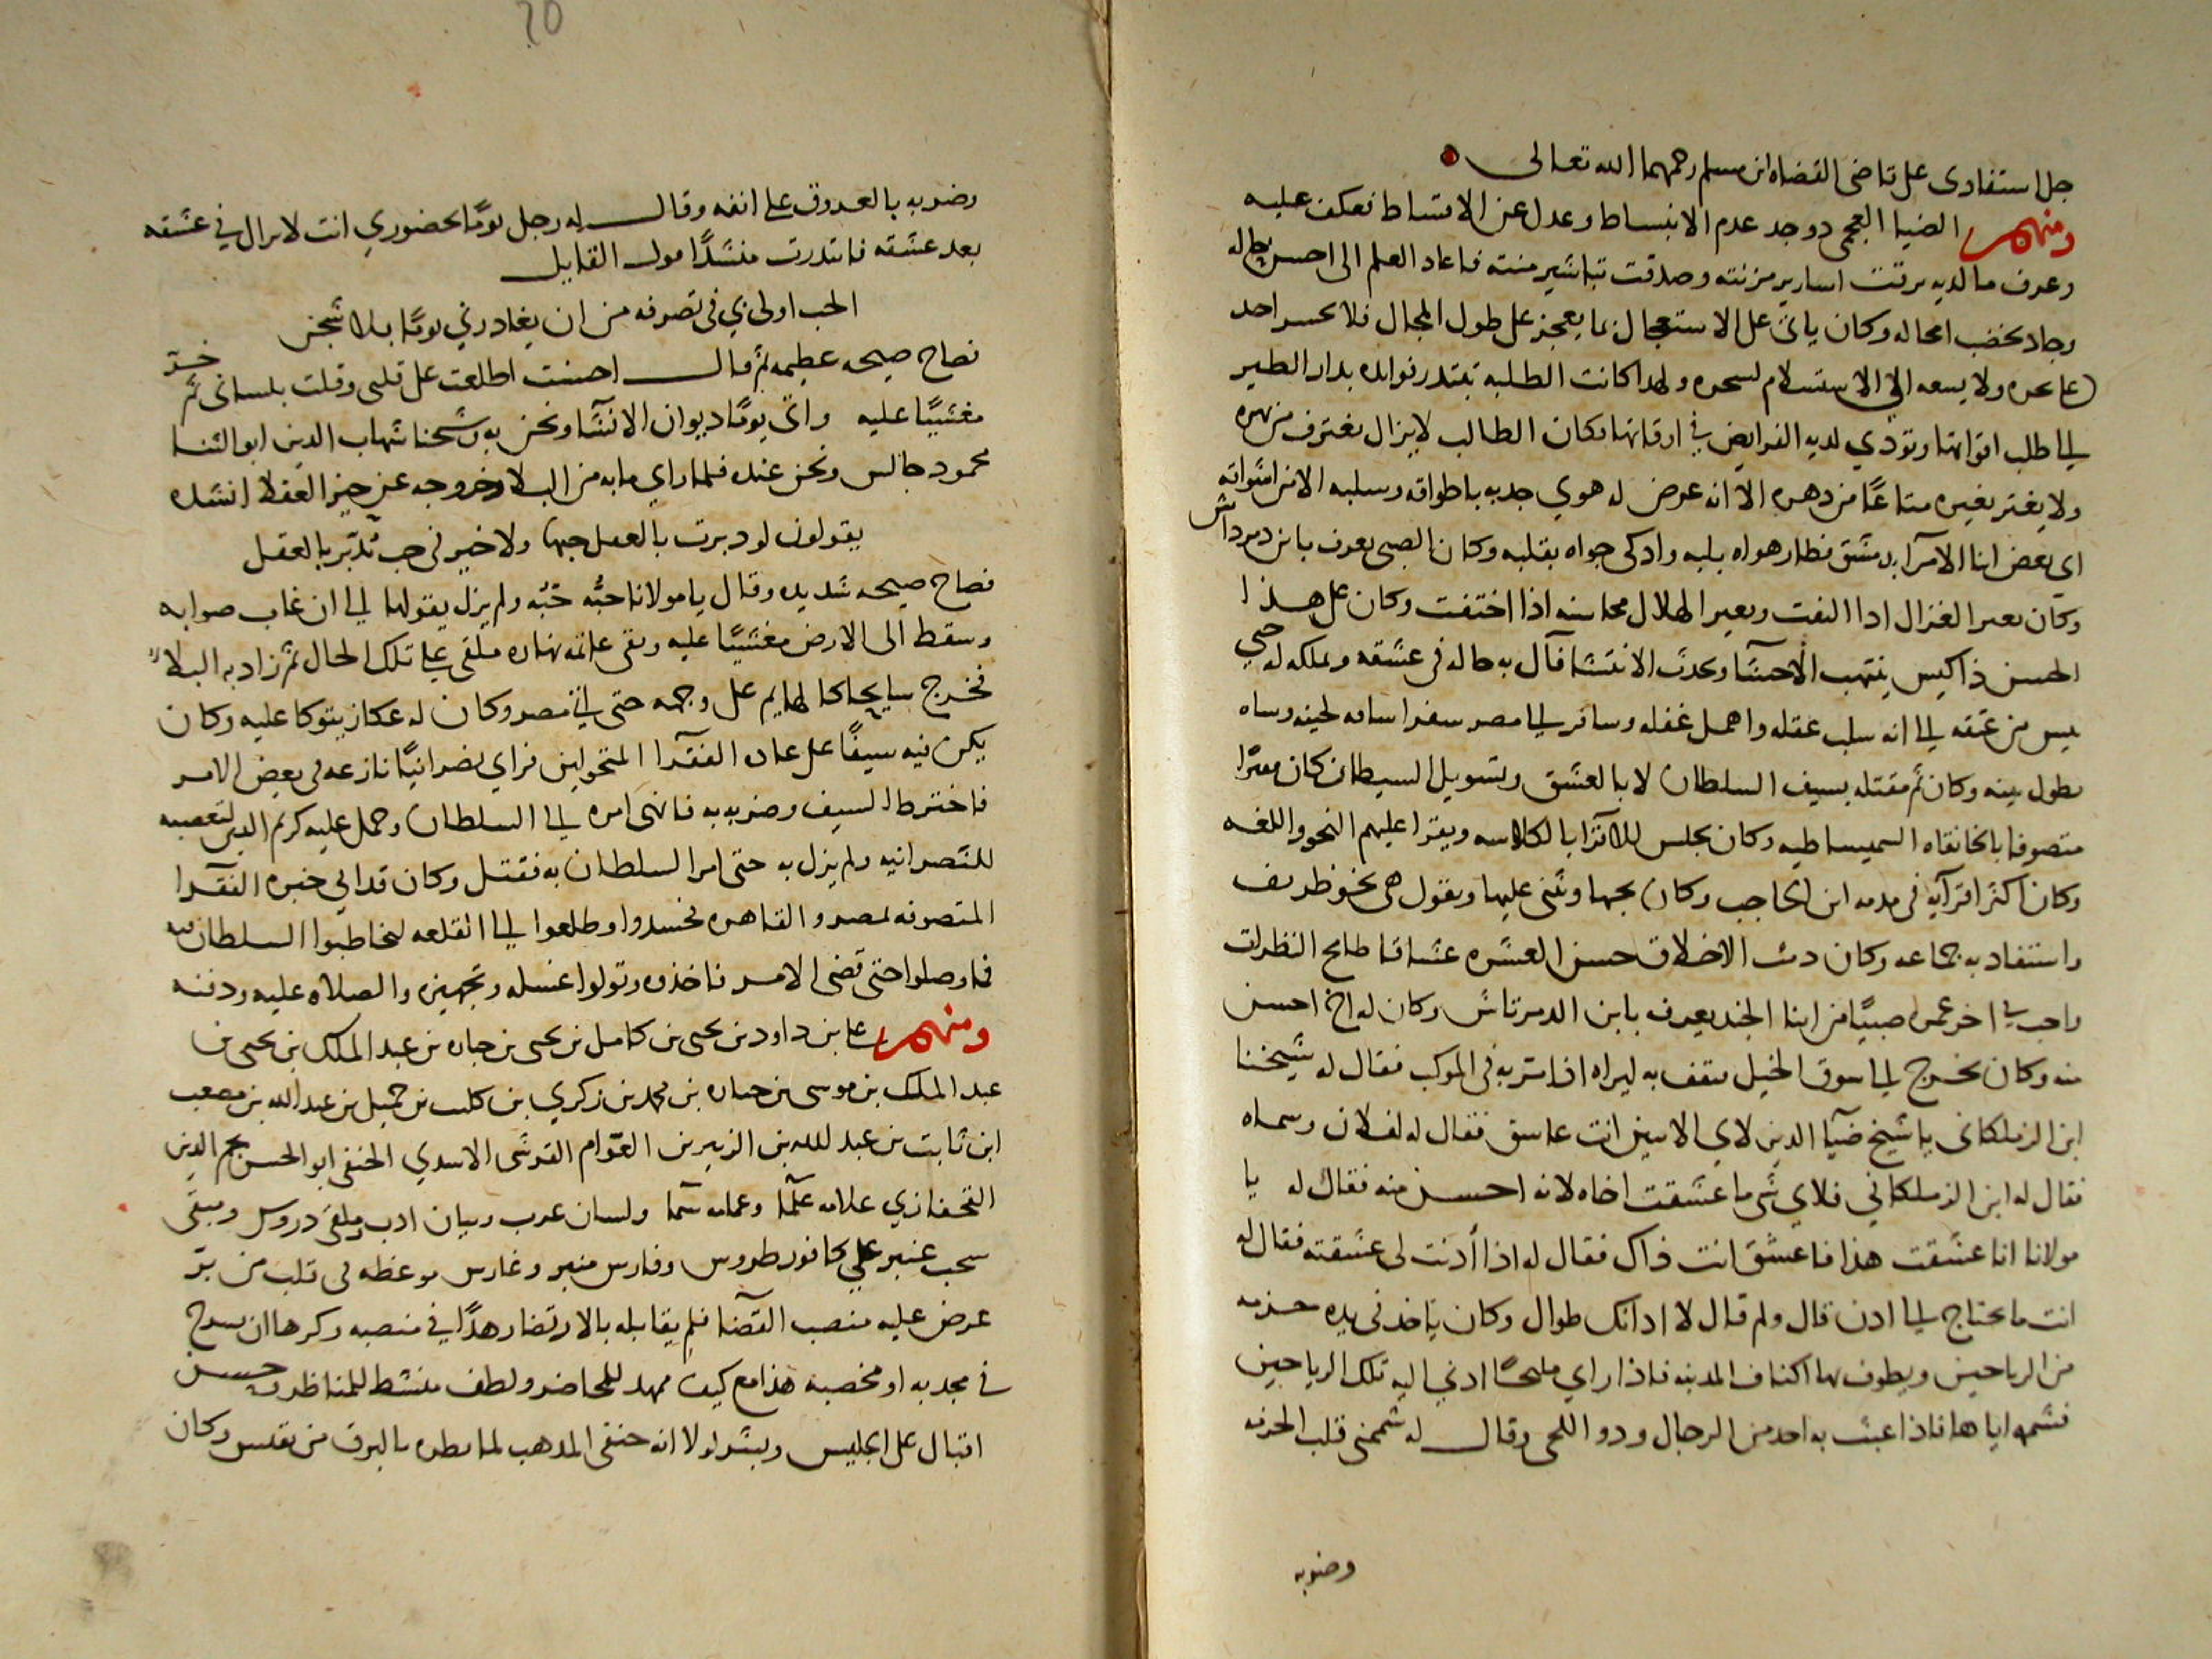 جل استفادى على قاضى القضاه ابن مسلم رحمهما الله تعالى
ومنهم الضيا العجمى ذو جد عدم الانبساط وعدل عن الاقساط تعكف عليه
وعرف ما لديه برقت اسارير مزنته وصدقت تباشير منته فاعاد العلم الى احسن حاله
وجاد بخصب امحاله وكان ياتى على الاستعجال بما يعجز على طول المجال فلا يجسر احد
ولا يسعه الى الاستسلام لسحره ولهذا كانت الطلبه تبتدر فوايده بدار الطير
الى طلب اقواتها وتودي لديه الفرايض في اوقاتها وكان الطالب لا يزال يغترف من نهره
ولا يغتر بغيره متاعًا من دهره الا انه عرض له هوي جذبه باطواقه وسلبه الا من اشواقه
اى بعض ابنا الامرآ بدمشق فطار هواه بلبه واذكى جواه بقلبه وكان الصبى يعرف بابن دمرداش
وكان يعير الغزال اذا التفت ويعير الهلال محاسنه اذا اختفت وكان على هذا
الحسن ذا كيس ينتهب الاحشآ ويحدث الانتشا فآل به حاله فى عشقه وتملكه له حتي
يىس من عتقه الى انه سلب عقله واهمل غفله وسافر الى مصر سفرا ساقه لحينه وساه
بطول بينه وكان ثم مقتله بسيف السلطان لا بالعشق وتسويل الشيطان كان مقرًا
متصوفا بالخانقاه السميساطيه وكان يجلس للاقرا بالكلاسه ويقرا عليهم النحو واللغه
وكان اكثر اقرآيه فى مقدمه ابن الحاجب وكان يحبها ويثنى عليها ويقول هى نحو ظريف
واستفاد به جماعه وكان دمث الاخلاق حسن العشره عشاقا طامح النظرات
واحب في اخر عمره صبيًا من ابنا الجند يعرف بابن الدمرتاش وكان له اخ احسن
منه وكان يخرج الى سوق الخيل يقف به ليراه اذا مر به فى الموكب فقال له شيخنا
ابن الزملكانى يا شيخ ضيآ الدين لاي الاسين انت عاشق فقال له لفلان وسماه
فقال له ابن الزملكاني فلاي شى ما عشقت اخاه لانه احسن منه فقال له يا
مولانا انا عشقت هذا فاعشق انت ذاك فقال له اذا أذنت لى عشقته فقال له
انت ما تحتاج الى اذن قال ولم قال لا اذانك طوال وكان ياخذ فى يده حزمه
من الرياحين ويطوف بها اكناف المدينه فاذا راي مليحًا ادني اليه تلك الرياحين
فشمه اياها فاذا عبث به احد من الرجال وذو اللحى وقال له شممنى قلب الحزمه
وضربه
وضربه بالعروق على انفه وقال له رجل يومًا بحضوري انت لا تزال في عشقه
بعد عشقه فابتدرت منشدًا قول القايل
الحب اولى بي فى تصرفه من ان يغادرني يومًا بلا شجن
فصاح صيحه عظيمه ثم قال احسنت اطلعت على قلبى وقلت بلسانى ثم خر
مغشيًا عليه واتى يومًا ديوان الانشآ ونحن به وشيخنا شهاب الدين ابو الثنا
محمود جالس ونحن عنده فلما راي ما به من البلا وخروجه عن حيز العقلا انشده
يقولون لو دبرت بالعقل حبها ولا خير فى حب تدبّر بالعقل
فصاح صيحه شديده وقال يا مولانا حبُّه حبُّه ولم يزل يقولها الى ان غاب صوابه
وسقط الى الارض مغشيًا عليه وبقى عامة نهاره ملقى على تلك الحال ثم زاد به البلا
فخرج سايحا كالهايم على وجهه حتى اتى مصر وكان له عكاز يتوكا عليه وكان
يكن فيه سيفًا على عاده الفقرآ المتجولين فراي نصرانيًا نازعه فى بعض الامر
فاخترط السيف وضربه به فانهى امره الى السلطان وحمل عليه كريم الدين لتعصبه
للنصرانيه ولم يزل به حتى امر السلطان به فقتل وكان قد اتي خبره الفقرآ
المتصوفه بمصر والقاهره فحشدوا وطلعوا الى القلعه ليخاطبوا السلطان فيه
فما وصلوا حتى قضى الامر فاخذوه وتولوا غسله وتجهيزه والصلاه عليه ودفنه
ومنهم على بن داود بن يحيى بن كامل بن يحيى بن جباره بن عبد الملك بن يحيى بن
عبد الملك بن موسى بن جباره بن محمد بن زكري بن كليب بن جميل بن عبد الله بن مصعب
ابن ثابت بن عبد الله بن الزبير بن العوّام القرشى الاسدي الحنفى ابو الحسن نجم الدين
القحفازي علامه علمآ وغمامه سمآ ولسان عرب وبيان ادب وملقى دروس ومبقى
سحب عنبر على كافور طروس وفارس منبر وغارس موعظه فى قلب من بر
عرض عليه منصب القضآ فلم يقابله بالارتضا زهدًا في منصبه وكرها ان يسرح
في مجدبه او مخصبه هذا مع كيف ممهد للمحاضر ولطف منشط للمناظر وحسن
اقبال على الجليس وبشر لولا انه حنفى المذهب لما نظره بالبرق من نفس وكان